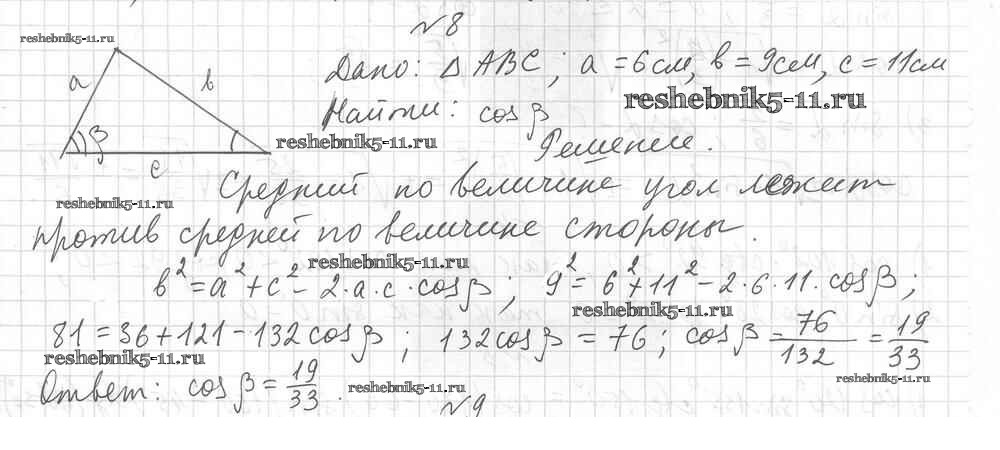 №8
reshebnik5-11.ru
a
b
β
c
Дано: Δ ABC; a = 6 см, b = 9 см, c = 11 см
reshebnik5-11.ru
Найти: cos β
reshebnik5-11.ru
Решение.
reshebnik5-11.ru
Средний по величине угол лежит
против средней по величине стороны.
reshebnik5-11.ru
b² = a² + c² - 2·a·c·cos β; 9² = 6² + 11² - 2·6·11·cos β;
reshebnik5-11.ru
81 = 36 + 121 - 132 cos β; 132 cos β = 76; cos β = 76/132 = 19/33
reshebnik5-11.ru
reshebnik5-11.ru
Ответ: cos β = 19/33.
reshebnik5-11.ru
№9